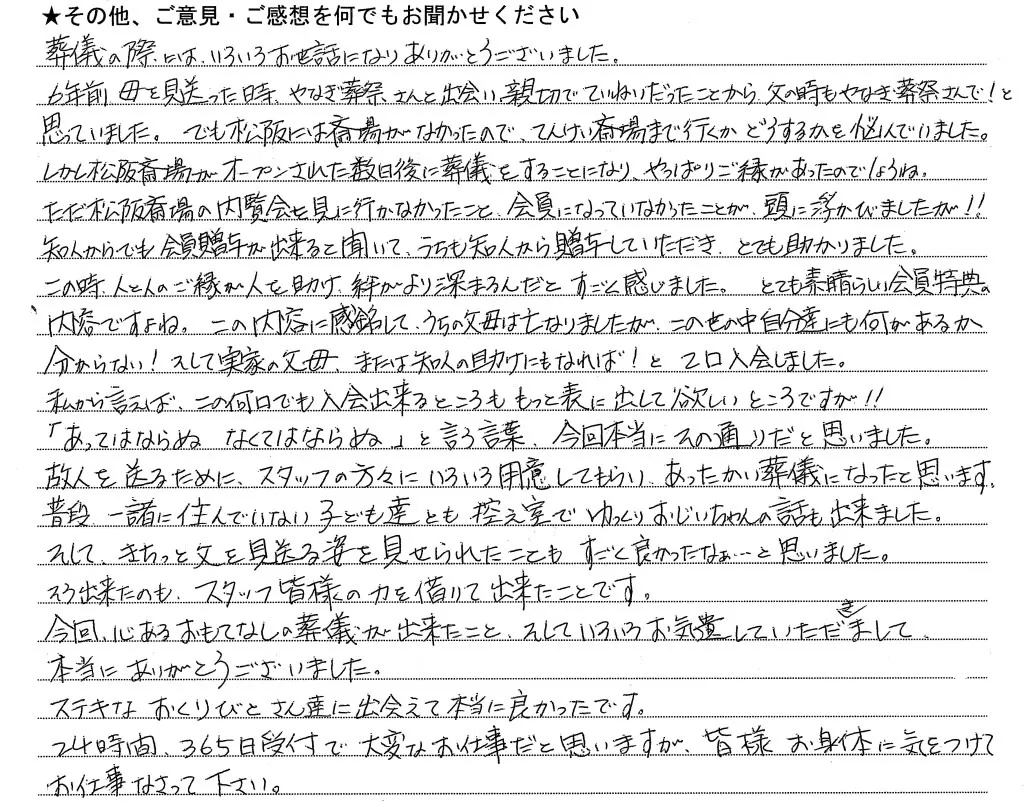 ★その他、ご意見・ご感想を何でもお聞かせください
葬儀の際には、いろいろお世話になりありがとうございました。
6年前 母を見送った時、やなぎ葬祭さんと出会い、親切でていねいだったことから、父の時もやなぎ葬祭さんで!と
思っていました。でも松阪には斎場がなかったので、てんけい斎場まで行くか どうするかを悩んでいました。
しかし松阪斎場がオープンされた数日後に葬儀をすることになり、やっぱりご縁があったのでしょうね。
ただ松阪斎場の内覧会を見に行かなかったこと、会員になっていなかったことが、頭に浮かびましたが!!
知人からでも会員贈与が出来ると聞いて、うちも知人から贈与していただき、とても助かりました。
この時、人と人のご縁が人を助け、絆がより深まるんだと すごく感じました。 とても素晴らしい会員特典の
内容ですよね。この内容に感銘して、うちの父母は亡なりましたが、この世の中自分達にも何があるか
分からない! そして実家の父母、または知人の助けにもなれば!と 2口入会しました。
私から言えば、この何口でも入会出来るところも もっと表に出して欲しい ところですが!!
「あってはならぬ なくてはならぬ」と言う言葉、今回本当にその通りだと思いました。
故人を送るために、スタッフの方々に いろいろ用意してもらい、あったかい葬儀になったと思います。
普段 一諸に住んでいない子ども達とも 控え室で ゆっくりおじいちゃんの話も出来ました。
そして、きちっと父を見送る姿を見せられたことも すごく良かったなぁ…と思いました。
そう出来たのも、スタッフ皆様の力を借りて出来たことです。
今回、心あるおもてなしの葬儀が出来たこと、そしていろいろお気遣していただきまして、
本当にありがとうございました。
ステキな おくりびとさん達に出会えて本当に良かったです。
24時間、365日受付で 大変なお仕事だと思いますが、皆様 お身体に気をつけて
お仕事なさって下さい。